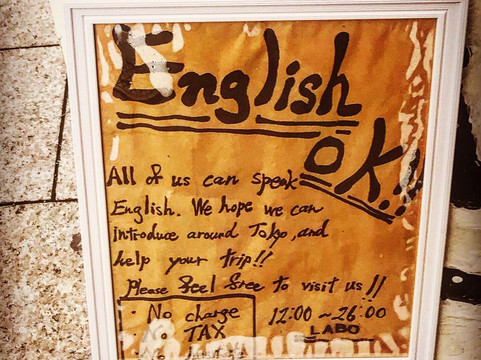 English
OK!!
All of us can speak
English. We hope we can
introduce around Tokyo, and
help your trip!!
Please feel free to visit us!!
・No charge
No TAX
No
12:00~26:00
LABO